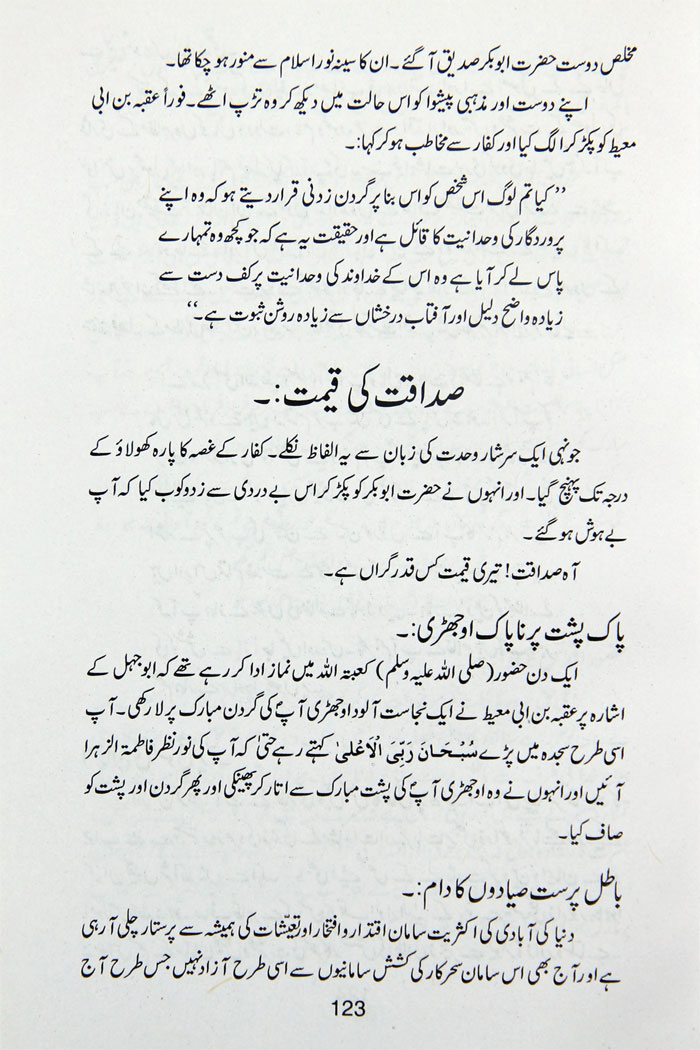 مخلص دوست حضرت ابوبکر صدیق آ گئے۔ ان کا سینہ نور اسلام سے منور ہو چکا تھا۔
اپنے دوست اور مذہبی پیشوا کو اس حالت میں دیکھ کر وہ تڑپ اٹھے۔ فوراً عقبہ بن ابی
معیط کو پکڑ کر الگ کیا اور کفار سے مخاطب ہو کر کہا:۔
’’کیا تم لوگ اس شخص کو اس بنا پر گردن زدنی قرار دیتے ہو کہ وہ اپنے
پروردگار کی وحدانیت کا قائل ہے اور حقیقت یہ ہے کہ جو کچھ وہ تمہارے
پاس لے کر آیا ہے وہ اس کے خداوند کی وحدانیت پر کف دست سے
زیادہ واضح دلیل اور آفتاب درخشاں سے زیادہ روشن ثبوت ہے۔‘‘
صداقت کی قیمت:۔
جونہی ایک سرشار وحدت کی زبان سے یہ الفاظ نکلے۔ کفار کے غصہ کا پارہ کھولاؤ کے
درجہ تک پہنچ گیا۔ اور انہوں نے حضرت ابوبکر کو پکڑ کر اس بے دردی سے زدوکوب کیا کہ آپ
بے ہوش ہو گئے۔
آہ صداقت! تیری قیمت کس قدر گراں ہے۔
پاک پشت پر ناپاک اوجھڑی:۔
ایک دن حضور (صلی اللہ علیہ وسلم) کعبتہ اللہ میں نماز ادا کر رہے تھے کہ ابوجہل کے
اشارہ پر عقبہ بن ابی معیط نے ایک نجاست آلود اوجھڑی آپؐ کی گردن مبارک پر لا رکھی۔ آپ
اسی طرح سجدہ میں پڑے سُبْحَانَ رَبِّیَ الْاَعْلیٰ کہتے رہے حتیٰ کہ آپ کی نور نظر فاطمۃ الزہرا
آئیں اور انہوں نے وہ اوجھڑی آپؐ کی پشت مبارک سے اتار کر پھینکی اور پھر گردن اور پشت کو
صاف کیا۔
باطل پرست صیادوں کا دام:۔
دنیا کی آبادی کی اکثریت سامان اقتدار و افتخار اور تعیّشات کی ہمیشہ سے پرستار چلی آ رہی
ہے اور آج بھی اس سامان سحر کار کی کشش سامانیوں سے اسی طرح آزاد نہیں جس طرح آج
123